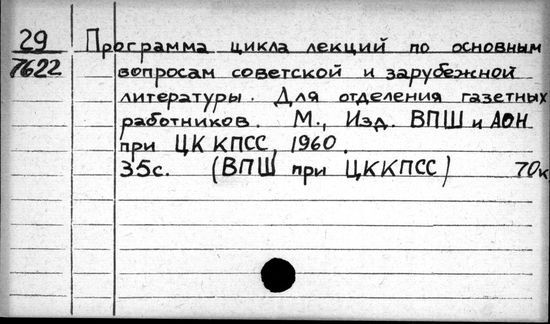 29 Программа цикла лекций по основным
7622 вопросам советской и зарубежной
литературы. Для отделения газетных
работников. М., Изд. ВПШ и АОН
при ЦК КПСС, 1960.
35с. (ВПШ при ЦККПСС) 70к